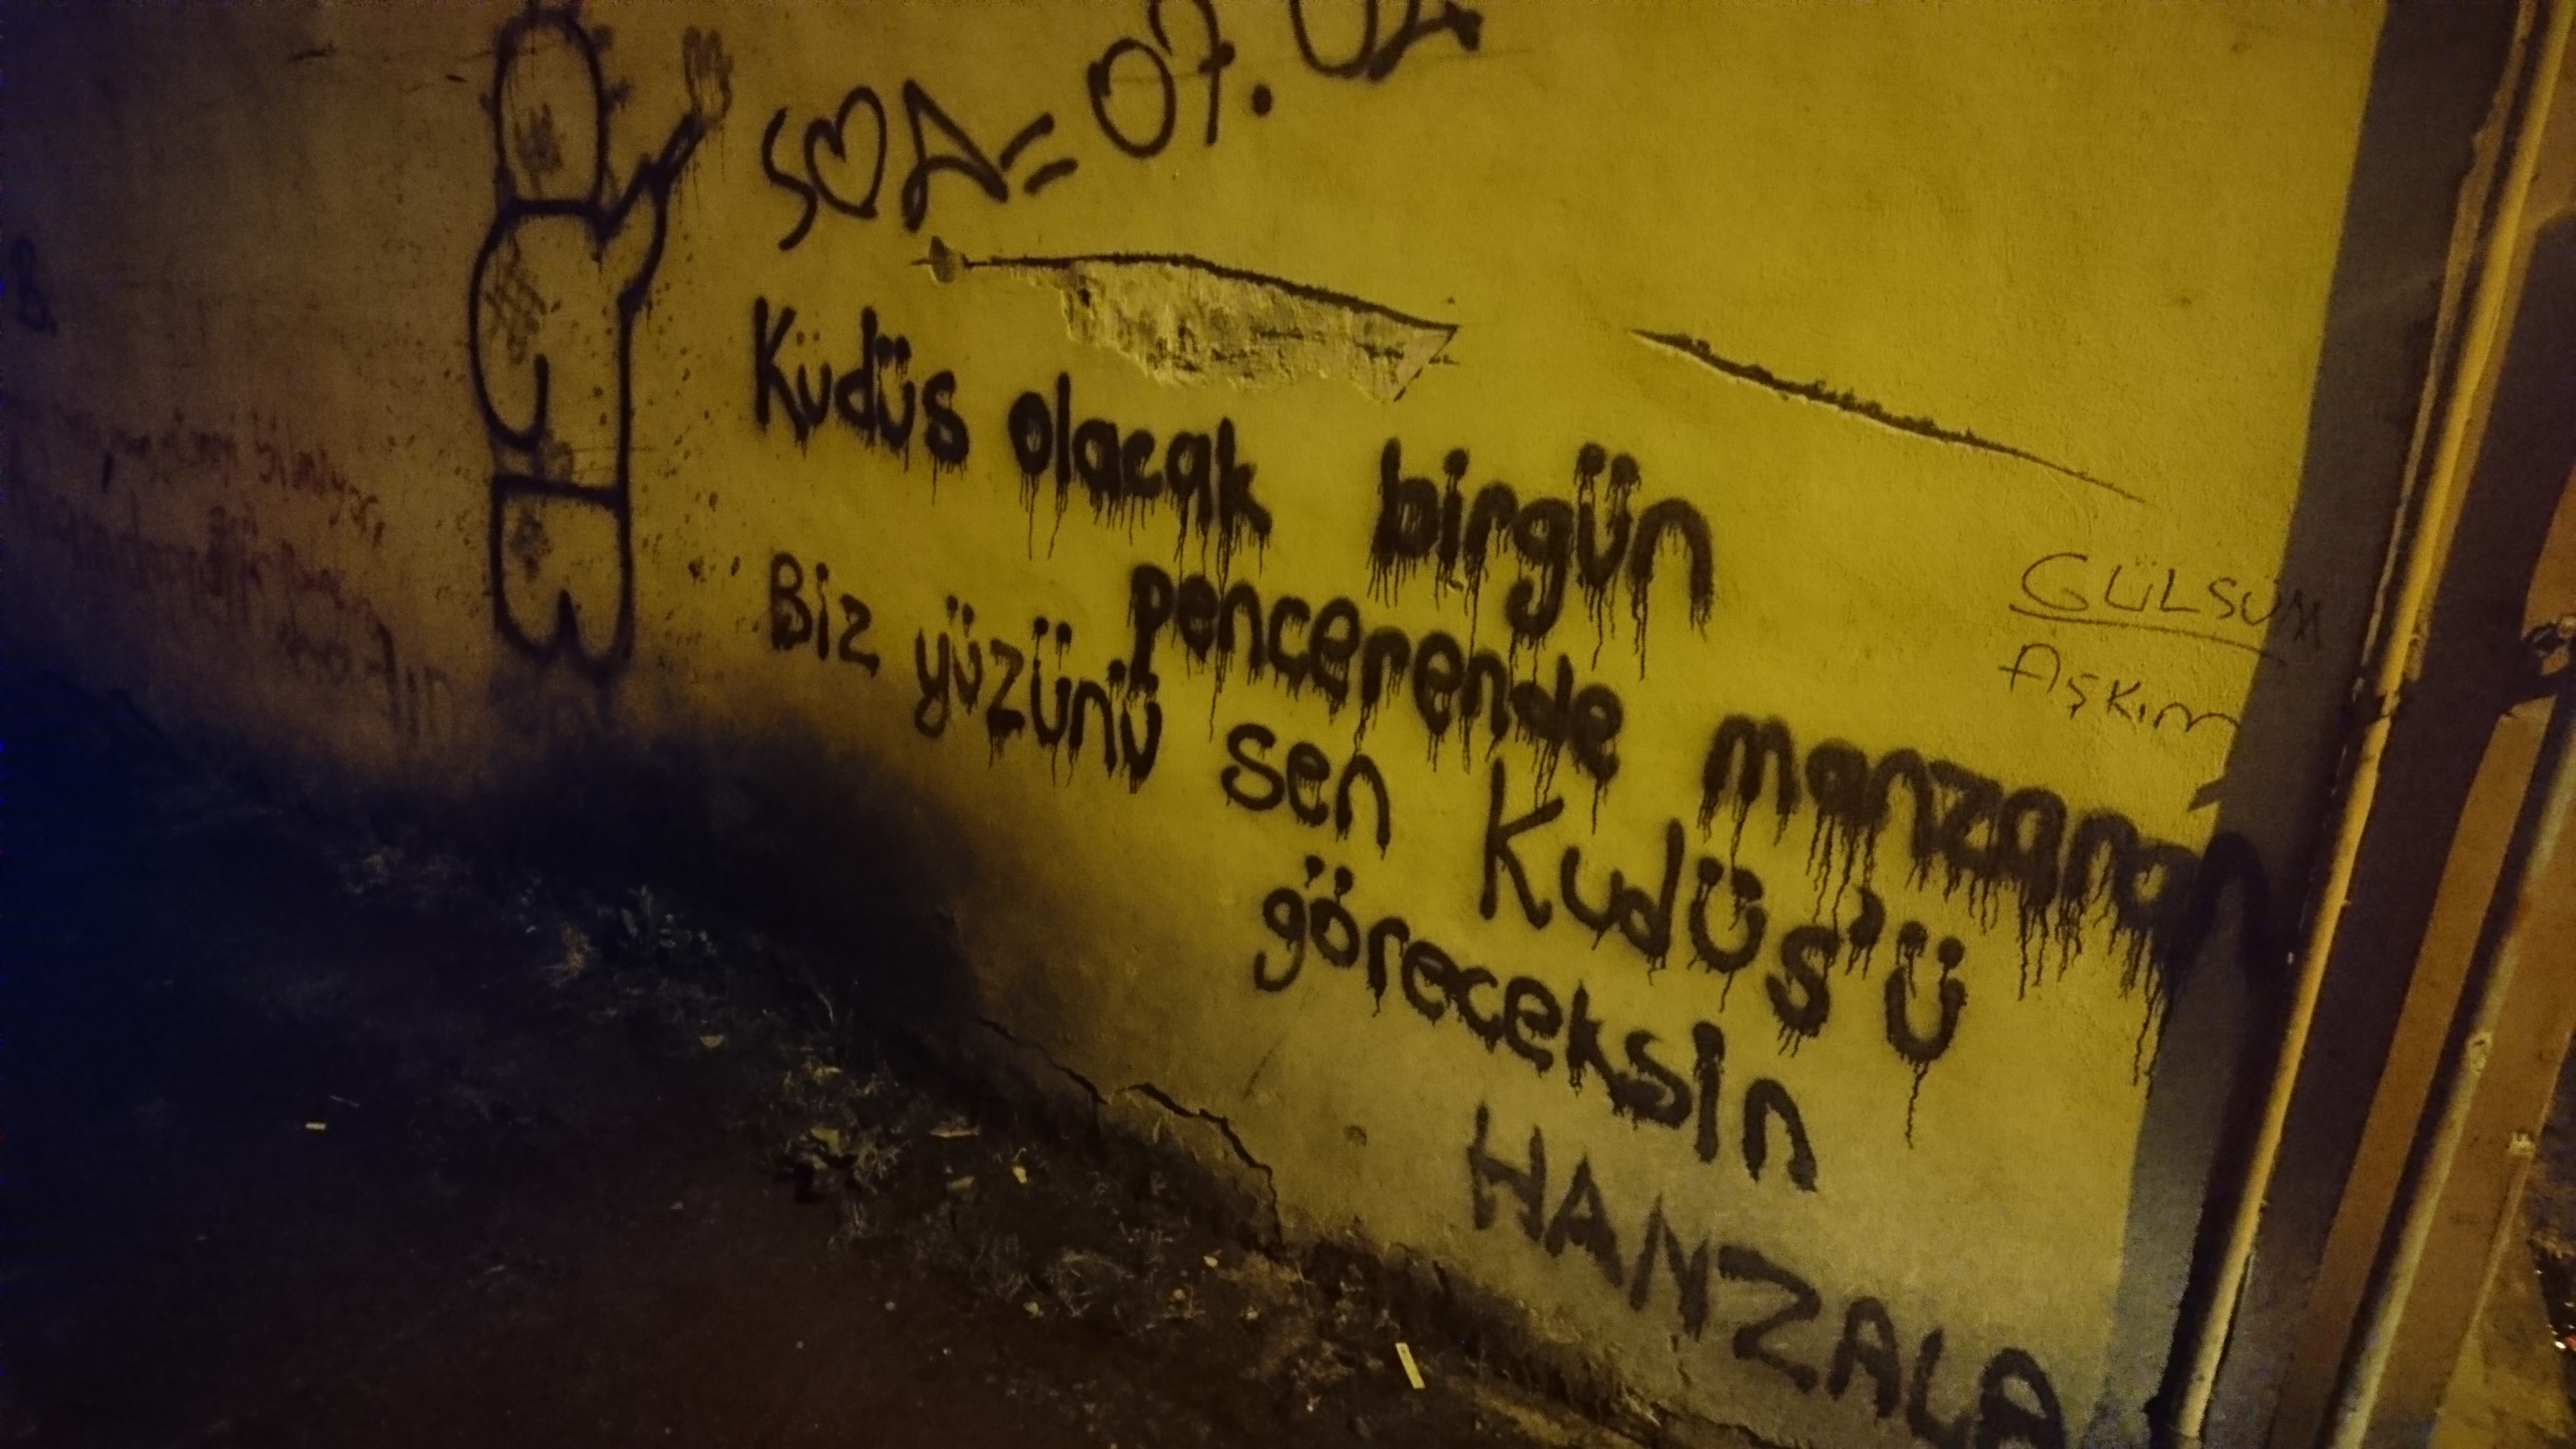 S♡A= 07.
Küdüs olacak birgün
pencerende manzaran
Biz yüzünü sen Kudüs'ü
göreceksin
HANZALA
GÜLSÜM
AŞKım
B